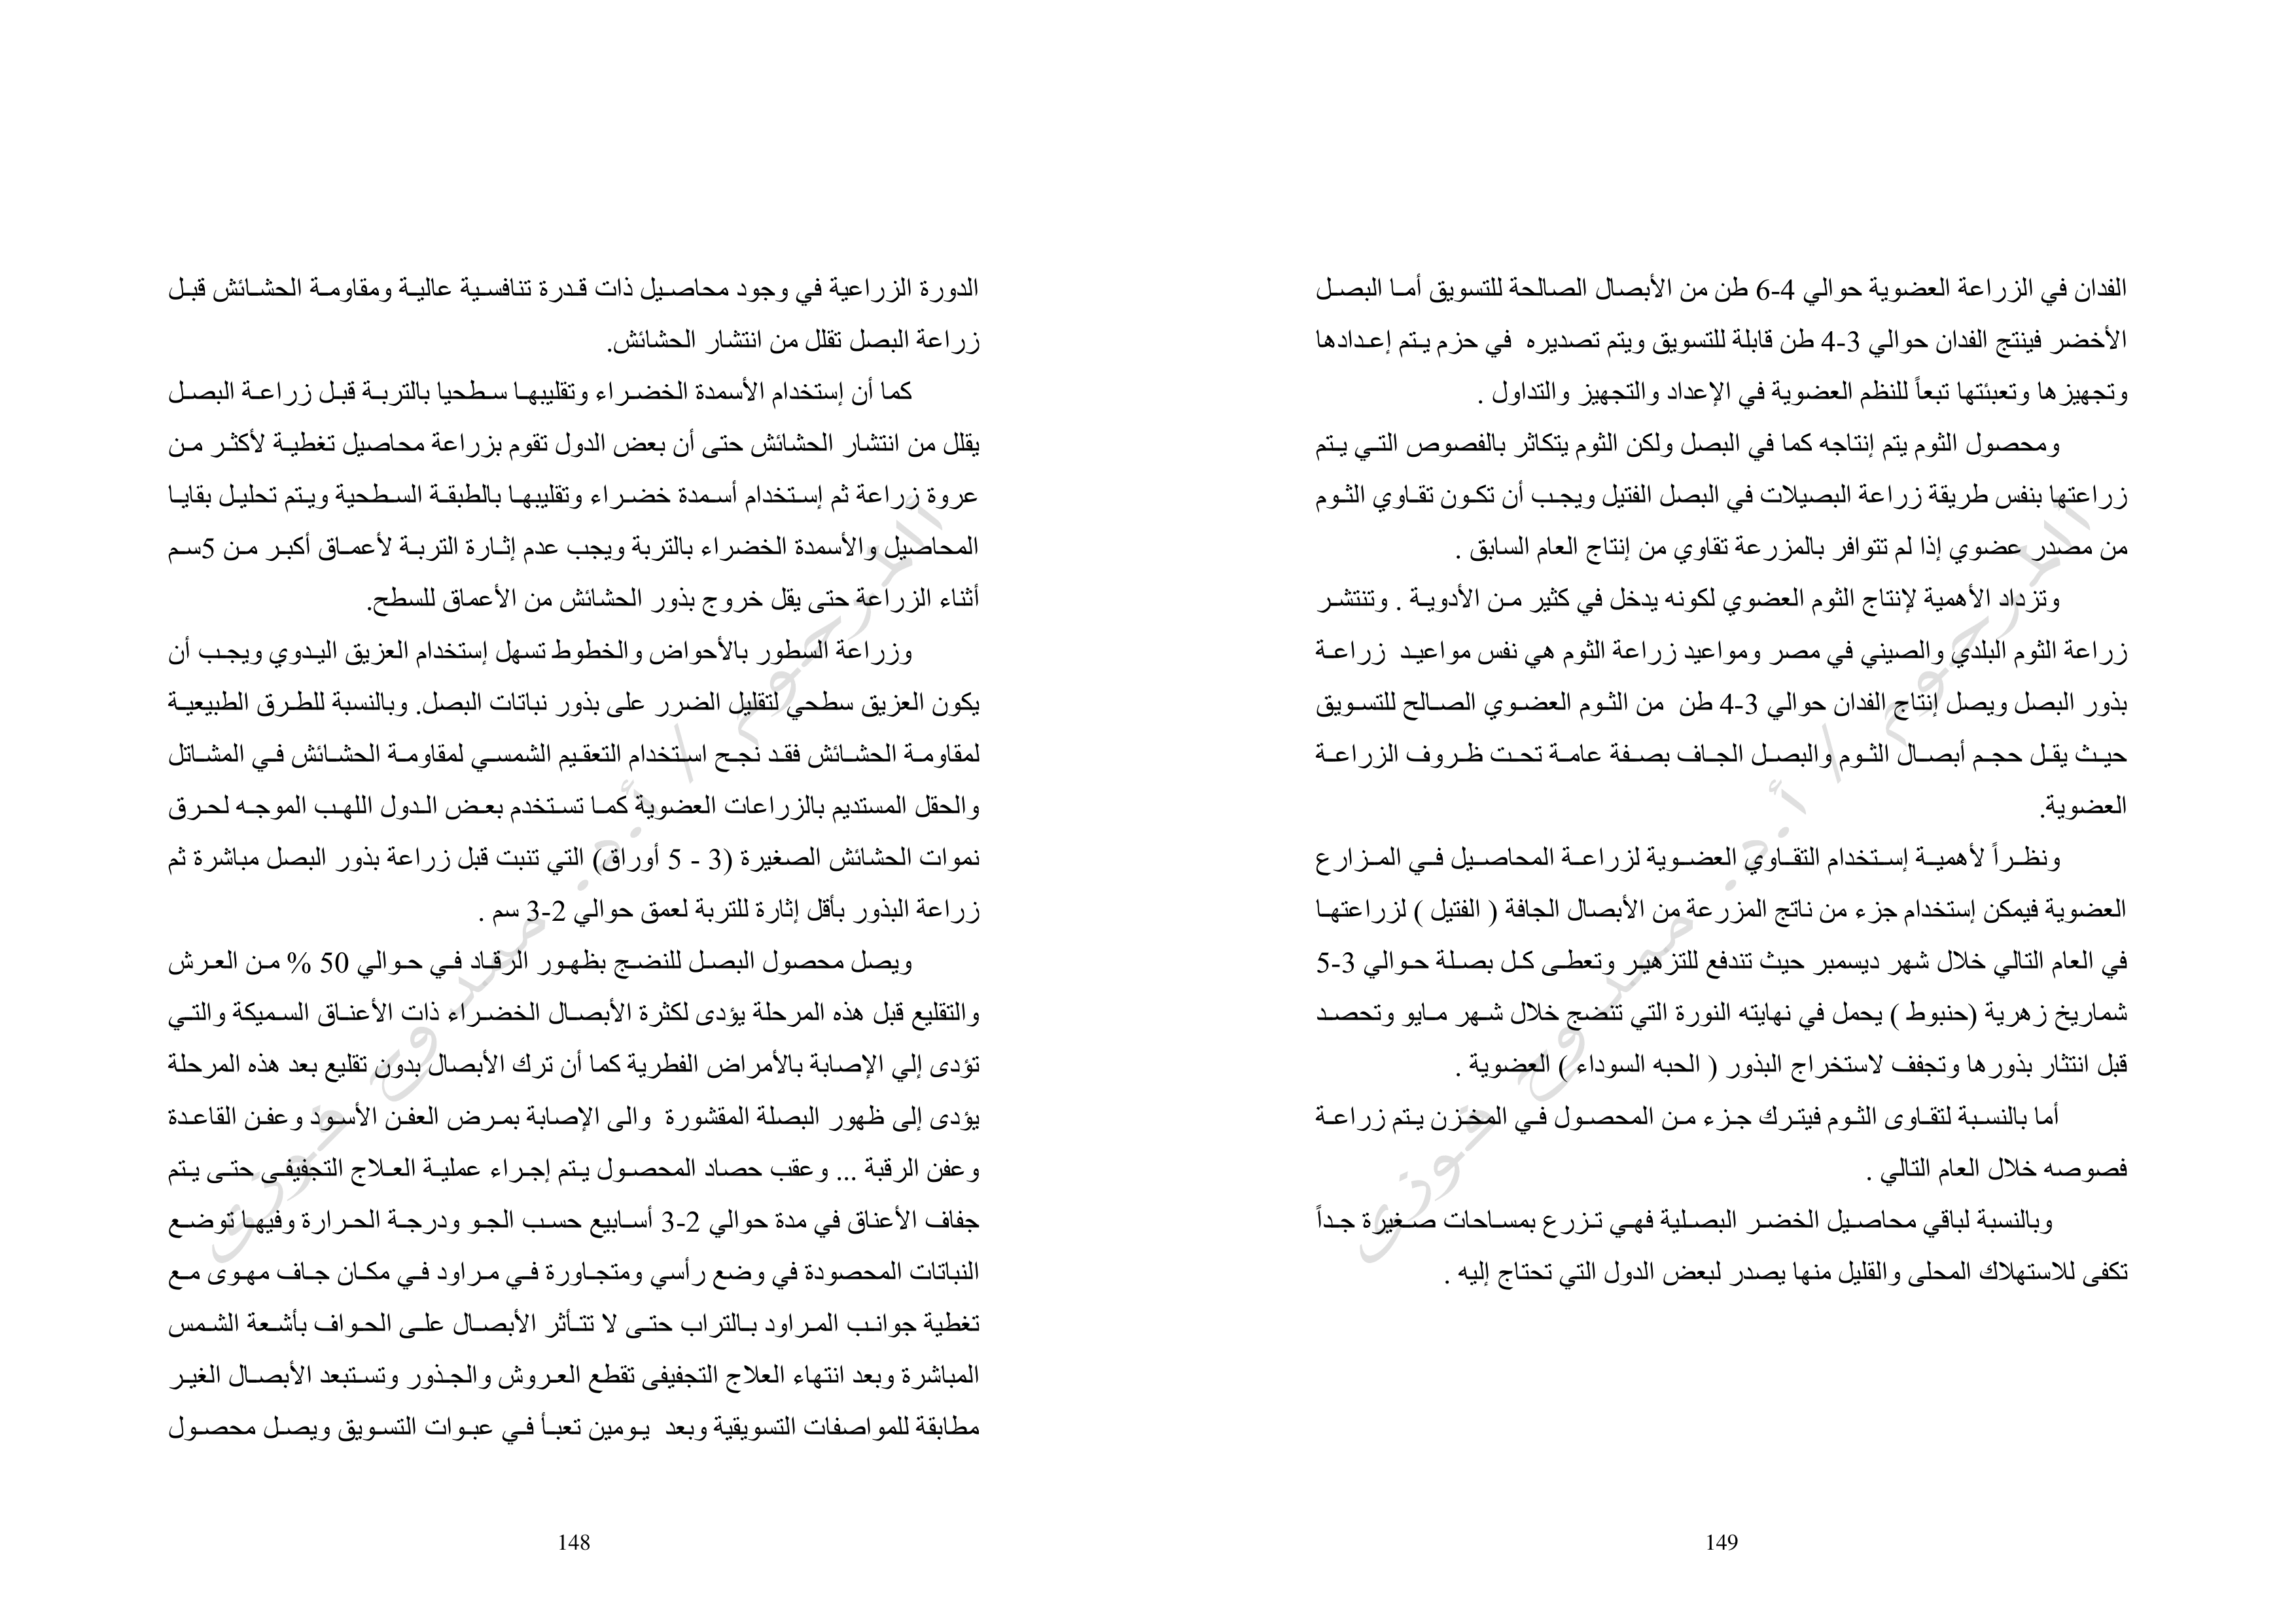 الدورة الزراعية في وجود محاصيل ذات قدرة تنافسية عالية ومقاومة الحشائش قبل
زراعة البصل تقلل من انتشار الحشائش.
كما أن إستخدام الأسمدة الخضراء وتقليبها سطحيا بالتربة قبل زراعة البصل
يقلل من انتشار الحشائش حتى أن بعض الدول تقوم بزراعة محاصيل تغطية لأكثر من
عروة زراعة ثم إستخدام أسمدة خضراء وتقليبها بالطبقة السطحية ويتم تحليل بقايا
المحاصيل والأسمدة الخضراء بالتربة ويجب عدم إثارة التربة لأعماق أكبر من 5سم
أثناء الزراعة حتى يقل خروج بذور الحشائش من الأعماق للسطح.
وزراعة السطور بالأحواض والخطوط تسهل إستخدام العزيق اليدوي ويجب أن
يكون العزيق سطحي لتقليل الضرر على بذور نباتات البصل. وبالنسبة للطرق الطبيعية
لمقاومة الحشائش فقد نجح استخدام التعقيم الشمسي لمقاومة الحشائش في المشاتل
والحقل المستديم بالزراعات العضوية كما تستخدم بعض الدول اللهب الموجه لحرق
نموات الحشائش الصغيرة (3 - 5 أوراق) التي تنبت قبل زراعة بذور البصل مباشرة ثم
زراعة البذور بأقل إثارة للتربة لعمق حوالي 2-3 سم .
ويصل محصول البصل للنضج بظهور الرقاد في حوالي 50 % من العرش
والتقليع قبل هذه المرحلة يؤدى لكثرة الأبصال الخضراء ذات الأعناق السميكة والتي
تؤدى إلي الإصابة بالأمراض الفطرية كما أن ترك الأبصال بدون تقليع بعد هذه المرحلة
يؤدى إلى ظهور البصلة المقشورة والى الإصابة بمرض العفن الأسود وعفن القاعدة
وعفن الرقبة ... وعقب حصاد المحصول يتم إجراء عملية العلاج التجفيفى حتى يتم
جفاف الأعناق في مدة حوالي 2-3 أسابيع حسب الجو ودرجة الحرارة وفيها توضع
النباتات المحصودة في وضع رأسي ومتجاورة في مراود في مكان جاف مهوى مع
تغطية جوانب المراود بالتراب حتى لا تتأثر الأبصال على الحواف بأشعة الشمس
المباشرة وبعد انتهاء العلاج التجفيفى تقطع العروش والجذور وتستبعد الأبصال الغير
مطابقة للمواصفات التسويقية وبعد يومين تعبأ في عبوات التسويق ويصل محصول
148
الفدان في الزراعة العضوية حوالي 4-6 طن من الأبصال الصالحة للتسويق أما البصل
الأخضر فينتج الفدان حوالي 3-4 طن قابلة للتسويق ويتم تصديره في حزم يتم إعدادها
وتجهيزها وتعبئتها تبعاً للنظم العضوية في الإعداد والتجهيز والتداول .
ومحصول الثوم يتم إنتاجه كما في البصل ولكن الثوم يتكاثر بالفصوص التي يتم
زراعتها بنفس طريقة زراعة البصيلات في البصل الفتيل ويجب أن تكون تقاوي الثوم
من مصدر عضوي إذا لم تتوافر بالمزرعة تقاوي من إنتاج العام السابق .
وتزداد الأهمية لإنتاج الثوم العضوي لكونه يدخل في كثير من الأدوية . وتنتشر
زراعة الثوم البلدي والصيني في مصر ومواعيد زراعة الثوم هي نفس مواعيد زراعة
بذور البصل ويصل إنتاج الفدان حوالي 3-4 طن من الثوم العضوي الصالح للتسويق
حيث يقل حجم أبصال الثوم والبصل الجاف بصفة عامة تحت ظروف الزراعة
العضوية.
ونظراً لأهمية إستخدام التقاوي العضوية لزراعة المحاصيل في المزارع
العضوية فيمكن إستخدام جزء من ناتج المزرعة من الأبصال الجافة ( الفتيل ) لزراعتها
في العام التالي خلال شهر ديسمبر حيث تندفع للتزهير وتعطى كل بصلة حوالي 3-5
شماريخ زهرية (حنبوط ) يحمل في نهايته النورة التي تنضج خلال شهر مايو وتحصد
قبل انتثار بذورها وتجفف لاستخراج البذور ( الحبه السوداء ) العضوية .
أما بالنسبة لتقاوى الثوم فيترك جزء من المحصول في المخزن يتم زراعة
فصوصه خلال العام التالي .
وبالنسبة لباقي محاصيل الخضر البصلية فهي تزرع بمساحات صغيرة جداً
تكفى للاستهلاك المحلى والقليل منها يصدر لبعض الدول التي تحتاج إليه .
149
المرحوم / أ.د. ممدوح فوزى
المرحوم / أ.د. ممدوح فوزى